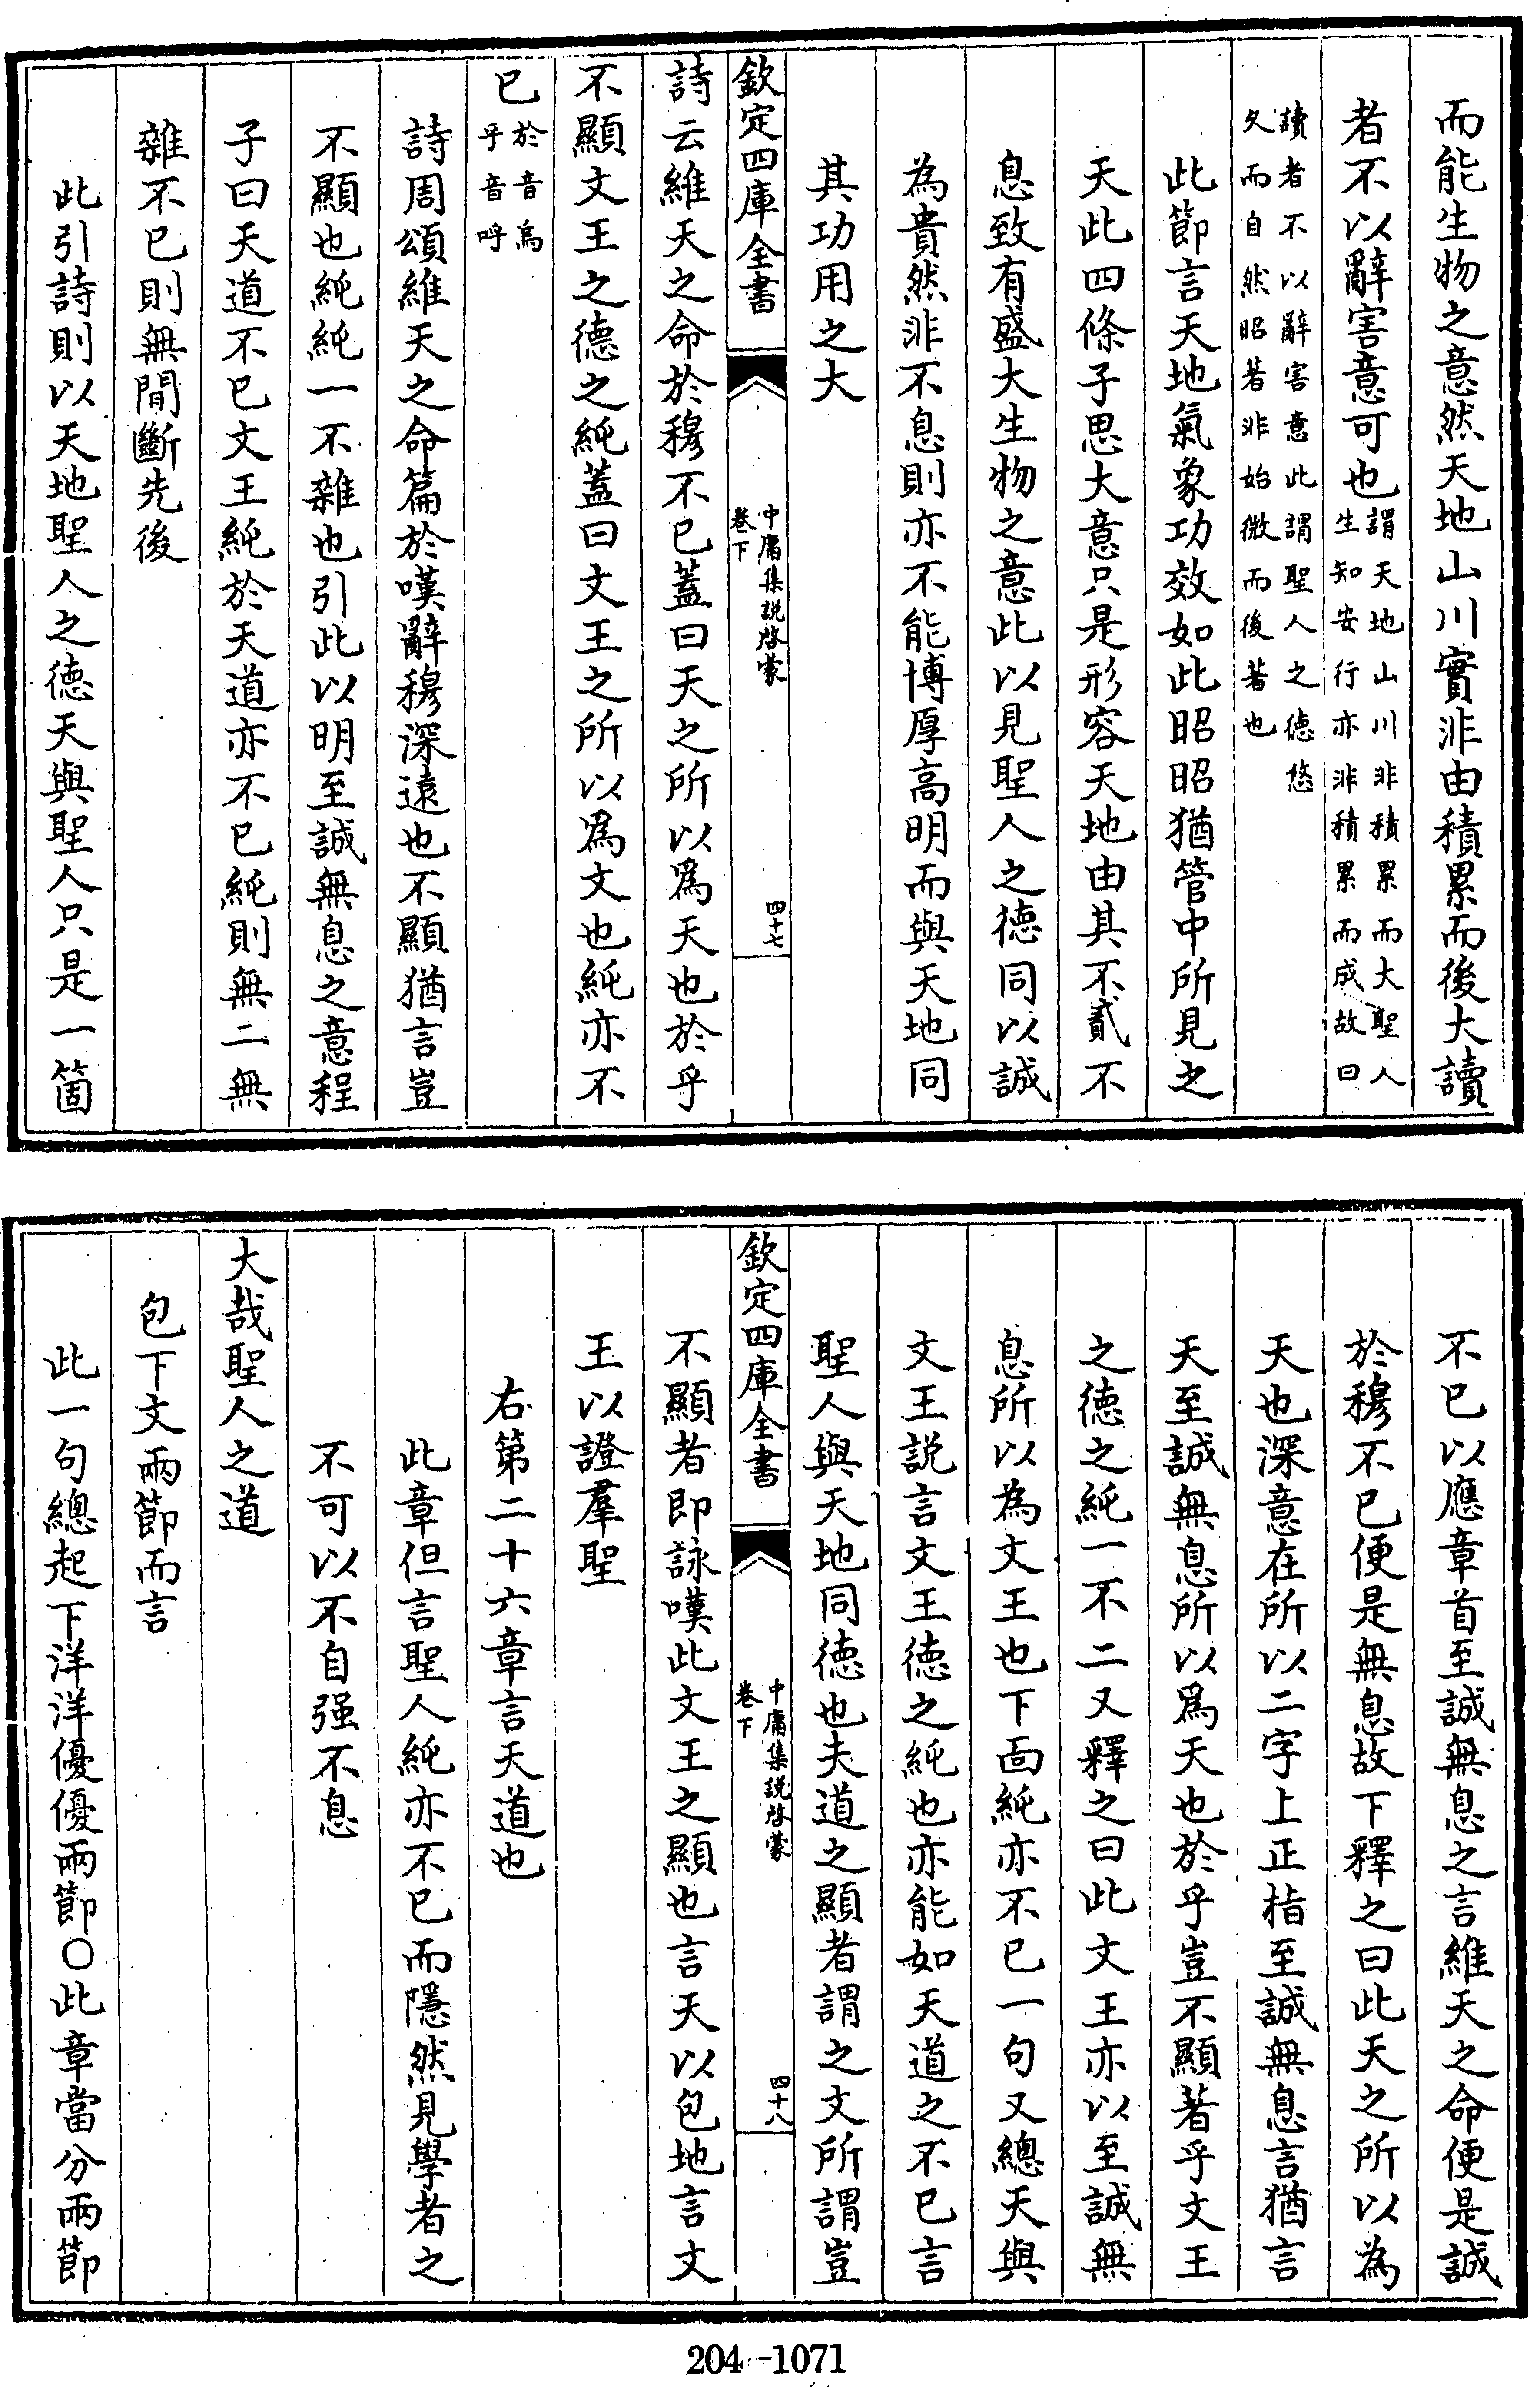 而能生物之意然天地山川實非由積累而後大讀
者不以辭害意可也謂天地山川非積累而大聖人生知安行亦非積累而成故曰
讀者不以辭害意此謂聖人之德悠久而自然昭著非始微而後著也
此節言天地氣象功效如此昭昭猶管中所見之
天此四條子思大意只是形容天地由其不貳不
息致有盛大生物之意此以見聖人之德同以誠
為貴然非不息則亦不能博厚高明而與天地同
其功用之大
欽定四庫全書
中庸集説啓蒙
卷下
四十七
詩云維天之命於穆不已蓋曰天之所以爲天也於乎
不顯文王之德之純蓋曰文王之所以爲文也純亦不
已於音烏乎音呼
詩周頌維天之命篇於嘆辭穆深遠也不顯猶言豈
不顯也純純一不雜也引此以明至誠無息之意程
子曰天道不已文王純於天道亦不已純則無二無
雜不已則無間斷先後
此引詩則以天地聖人之德天與聖人只是一箇
不已以應章首至誠無息之言維天之命便是誠
於穆不已便是無息故下釋之曰此天之所以為
天也深意在所以二字上正指至誠無息言猶言
天至誠無息所以爲天也於乎豈不顯著乎文王
之德之純一不二又釋之曰此文王亦以至誠無
息所以為文王也下面純亦不已一句又總天與
文王説言文王德之純也亦能如天道之不已言
聖人與天地同德也夫道之顯者謂之文所謂豈
欽定四庫全書
中庸集説啓蒙
卷下
四十八
不顯者即詠嘆此文王之顯也言天以包地言文
王以證羣聖
右第二十六章言天道也
此章但言聖人純亦不已而隱然見學者之
不可以不自强不息
大哉聖人之道
包下文兩節而言
此一句總起下洋洋優優兩節○此章當分兩節
204-1071